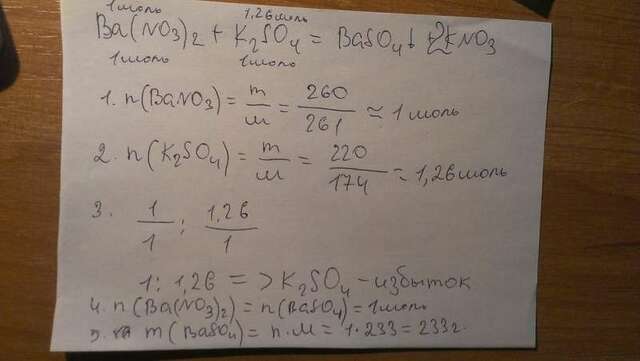 1 моль 1,26 моль
Ba(NO3)2 + K2SO4 = BaSO4↓ + 2KNO3
1 моль 1 моль
1. n(BaNO3) = m/M = 260/261 ≈ 1 моль
2. n(K2SO4) = m/M = 220/174 = 1,26 моль
3. 1/1 : 1,26/1
1 : 1,26 => K2SO4 - избыток
4. n(Ba(NO3)2) = n(BaSO4) = 1 моль
5. m(BaSO4) = n·M = 1·233 = 233 г.